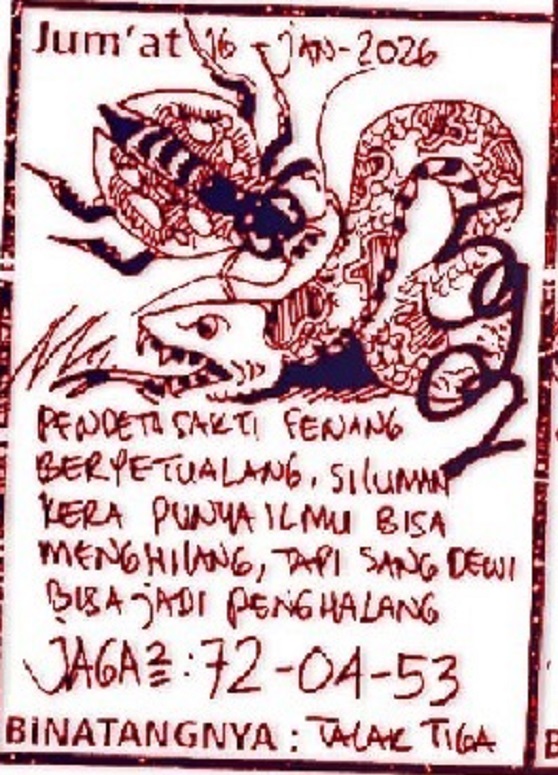 Jum'at 16 - JAN - 2026
PENDETA SAKTI SENANG
BERPETUALANG, SILUMAN
KERA PUNYA ILMU BISA
MENGHILANG, TAPI SANG DEWI
BISA JADI PENGHALANG
JAGA2 : 72-04-53
BINATANGNYA : TALAK TIGA
B